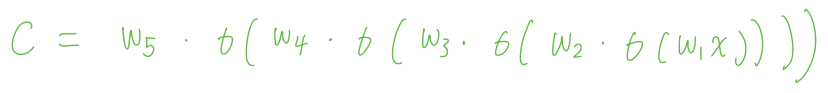 C = W₅ · σ( W₄ · σ ( W₃ · σ( W₂ · σ (W₁x))))